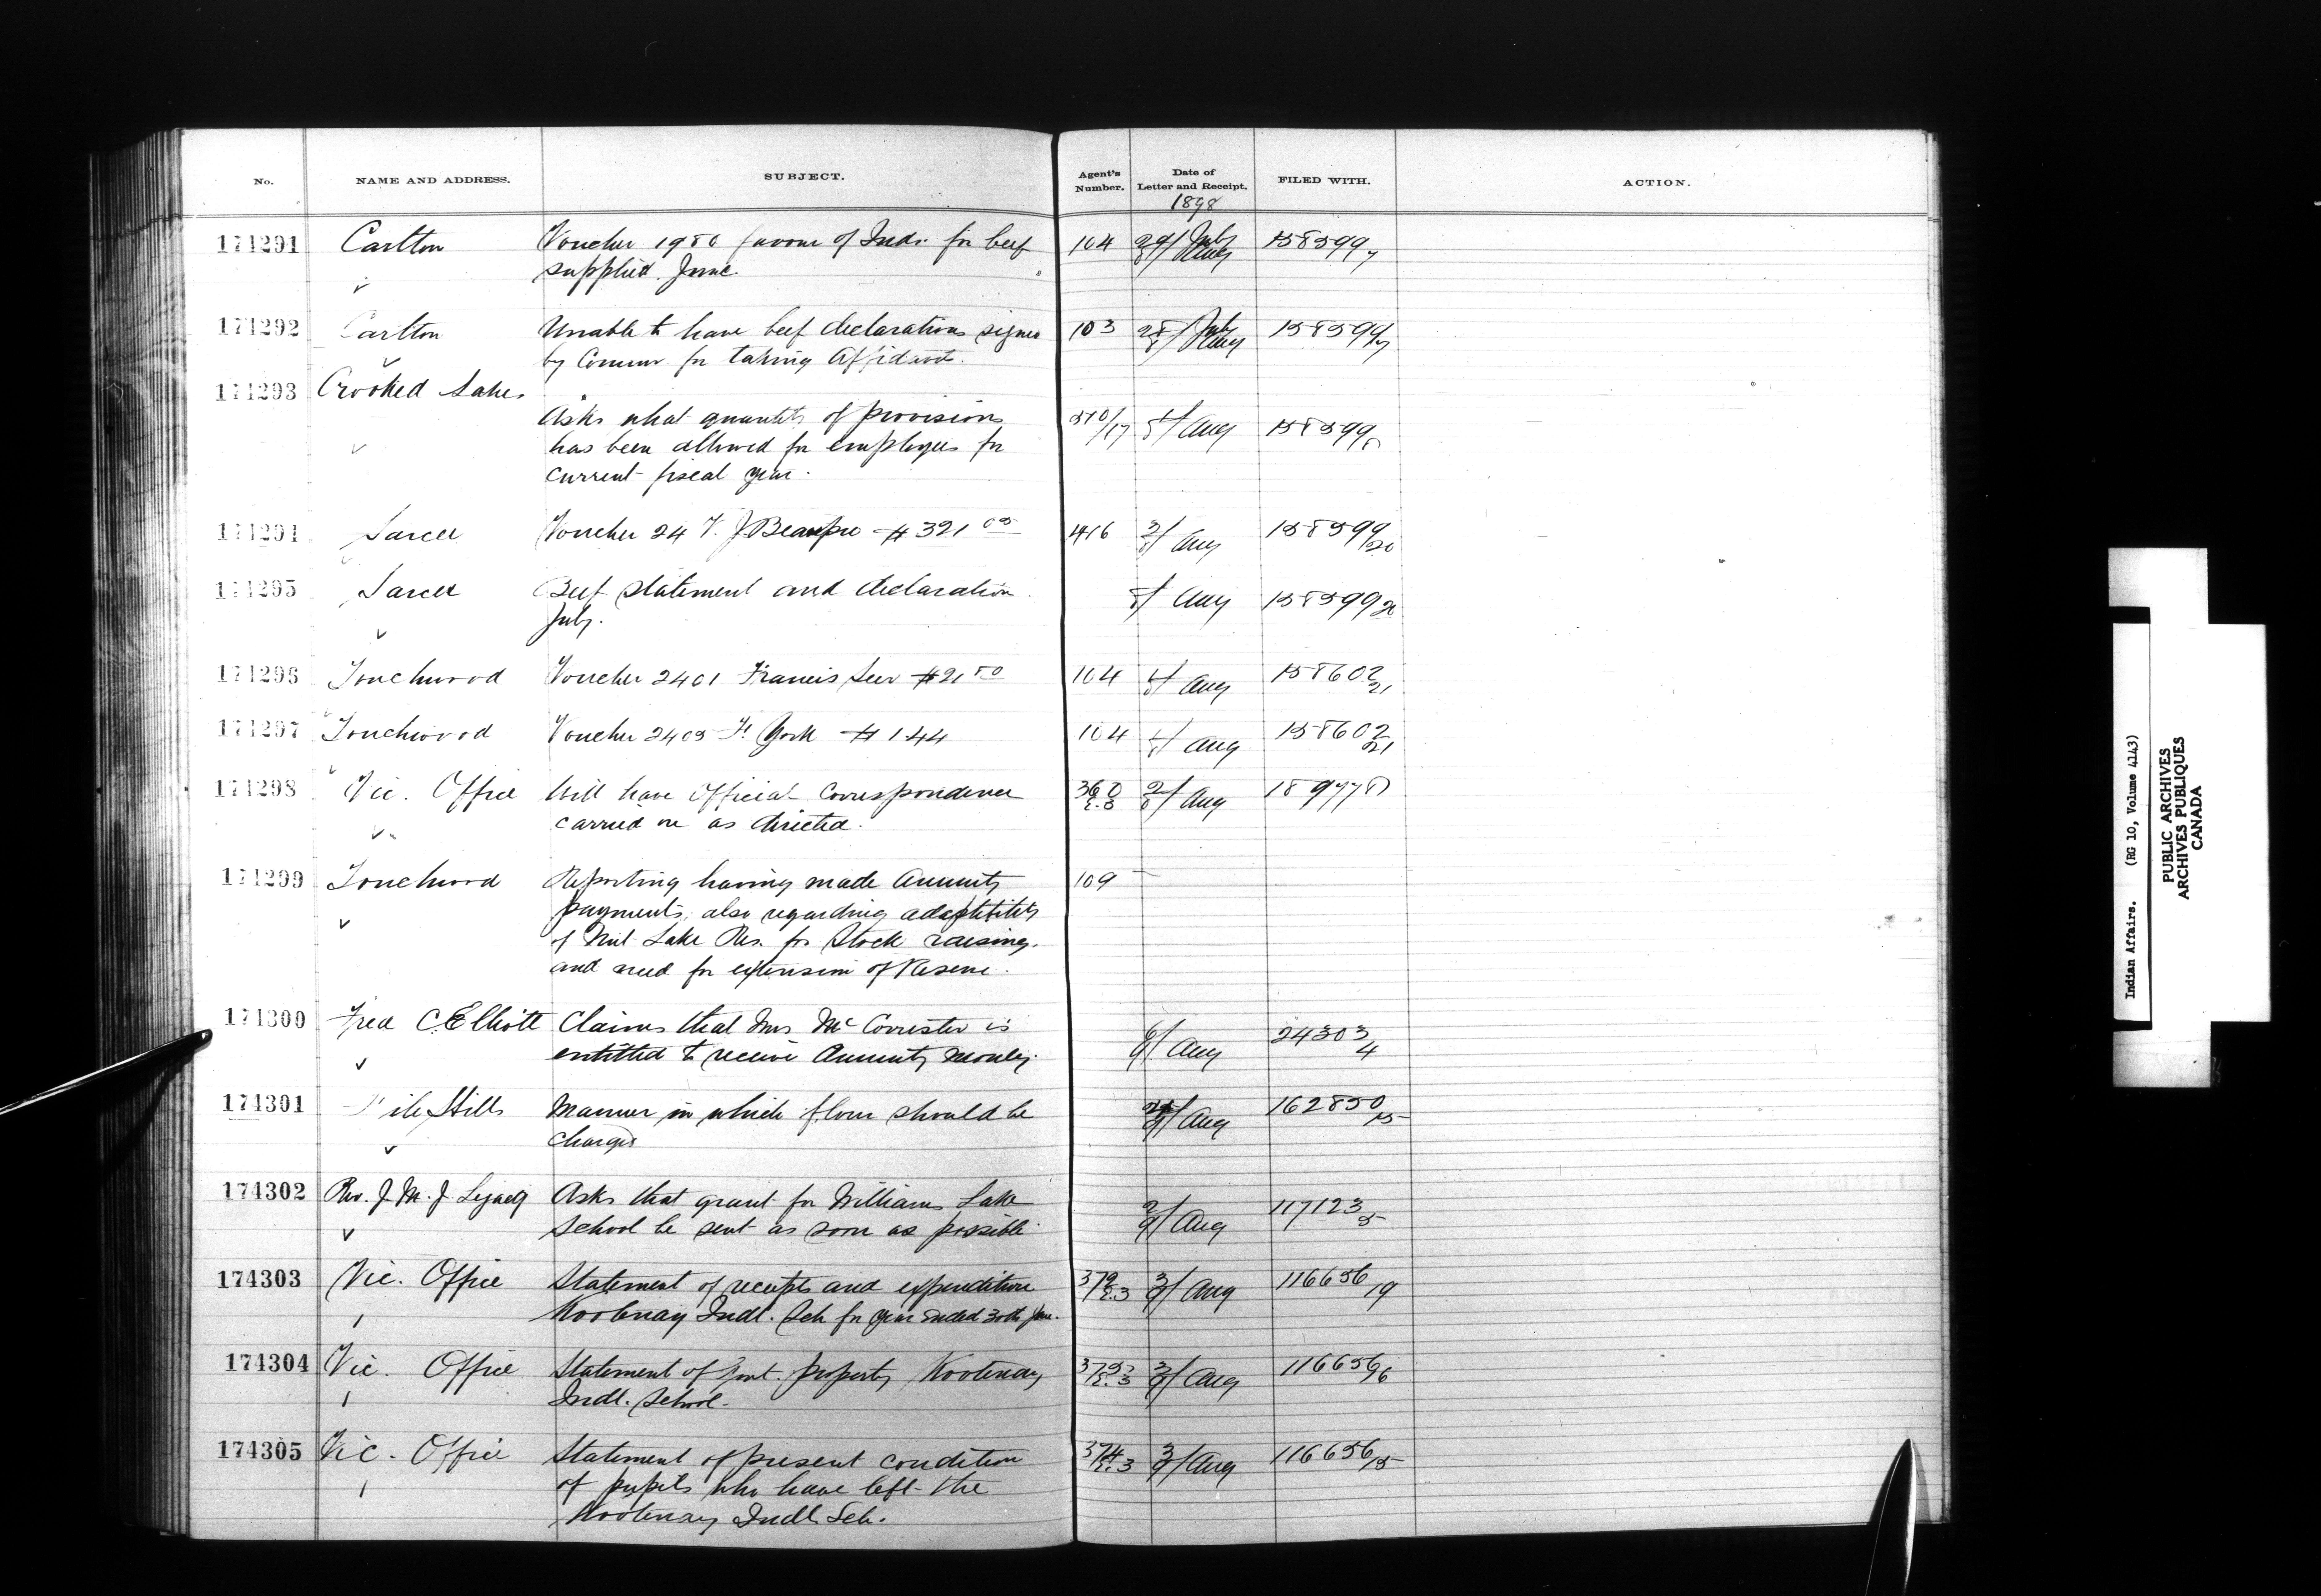 No. NAME AND ADDRESS. SUBJECT. Agent's Number. Date of Letter and Receipt. FILED WITH. ACTION.
1898
174291 Carlton Voucher 1980 favour of Inds. for beef 104 29/8 July Aug 158599/7
supplied June.
174292 Carlton Unable to have beef declarations signed 103 28/8 July Aug 158599/7
by Commr for taking Affidavit.
174293 Crooked Lakes
Asks what quantity of provisions 510/17 1/8 Aug 158599/8
has been allowed for employees for
current fiscal year.
174294 Sarcee Voucher 24 J. Beaupre $321 05 416 3/8 Aug 158599/20
174295 Sarcee Beef statement and declaration 1/8 Aug 158599/20
July.
174296 Touchwood Voucher 2401 Francis $21 50 104 4/8 Aug 158602/21
174297 Touchwood Voucher 2405 H. York $144 104 4/8 Aug 158602/21
174298 Vic. Office Will have Official Correspondence 360 E.3 2/8 Aug
carried on as directed.
174299 Touchwood Reporting having made Annuity 109
payments, also regarding adaptibility
of Nut Lake Res. for Stock raising.
and need for extension of Reserve.
174300 Fred C. Elliott Claims that Mrs McCorrister is 6/9 Aug 24303/4
entitled to receive Annuity money.
174301 File Hills Manner in which flour should be Aug 162850/15
charged
174302 Rev. J. M. J. Lejacq Asks that grant for Williams Lake 2/9 Aug 117123/5
School be sent as soon as possible
174303 Vic. Office Statement of receipts and expenditure 372/E.3 3/9 Aug 116656/19
Kootenay Indl. Sch for year ended 30th June.
174304 Vic. Office Statement of Govt. property Kootenay 373/E.3 3/9 Aug 116656/6
Indl. School.
174305 Vic. Office Statement of present condition 374/E.3 3/9 Aug 116656/15
of pupils who have left the
Kootenay Indl Sch.
Indian Affairs. (RG 10, Volume 4143)
PUBLIC ARCHIVES
ARCHIVES PUBLIQUES
CANADA